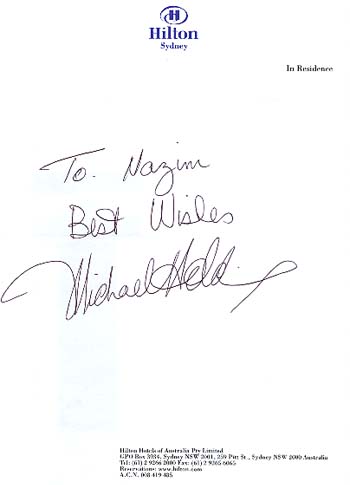 Hilton
Sydney
In Residence
To. Nazim
Best Wishes
Michael Holding
Hilton Hotels of Australia Pty Limited
GPO Box 3934, Sydney NSW 2001, 259 Pitt St., Sydney NSW 2000 Australia
Tel: (61) 2 9266 2000 Fax: (61) 2 9265 6065
Reservations: www.hilton.com
A.C.N. 008 419 485